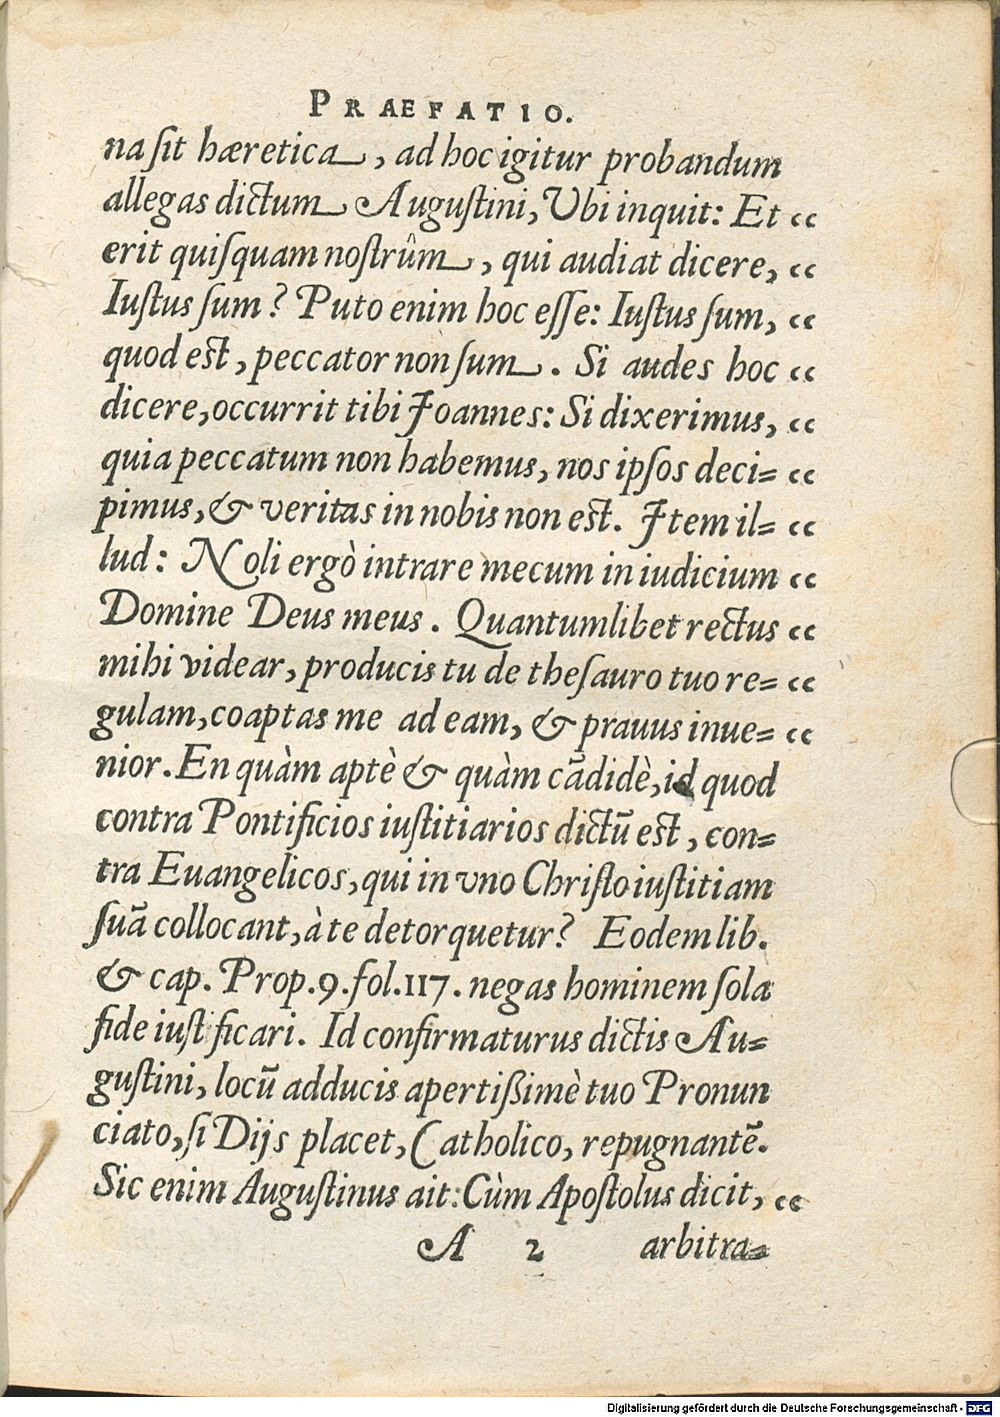 PRAEFATIO.
na ſit hæretica, ad hoc igitur probandum
allegas dictum Auguſtini, Vbi inquit: Et “
erit quiſquam noſtrûm, qui audiat dicere, “
Iuſtus ſum? Puto enim hoc eſſe: Iuſtus ſum, “
quod eſt, peccator non ſum. Si audes hoc “
dicere, occurrit tibi Ioannes: Si dixerimus, “
quia peccatum non habemus, nos ipſos deci- “
pimus, & veritas in nobis non eſt. Item il- “
lud: Noli ergò intrare mecum in iudicium “
Domine Deus meus. Quantumlibet rectus “
mihi videar, producis tu de theſauro tuo re- “
gulam, coaptas me ad eam, & prauus inue- “
nior. En quàm aptè & quàm cādidè, id quod
contra Pontificios iuſtitiarios dictū eſt, con-
tra Euangelicos, qui in vno Chriſto iuſtitiam
ſuā collocant, à te detorquetur? Eodem lib.
& cap. Prop. 9. fol. 117. negas hominem ſola
fide iuſtificari. Id confirmaturus dictis Au-
guſtini, locū adducis apertißimè tuo Pronun
ciato, ſi Dijs placet, Catholico, repugnantē.
Sic enim Auguſtinus ait: Cùm Apoſtolus dicit, “
A 2 arbitra-
Digitalisierung gefördert durch die Deutsche Forschungsgemeinschaft - DFG